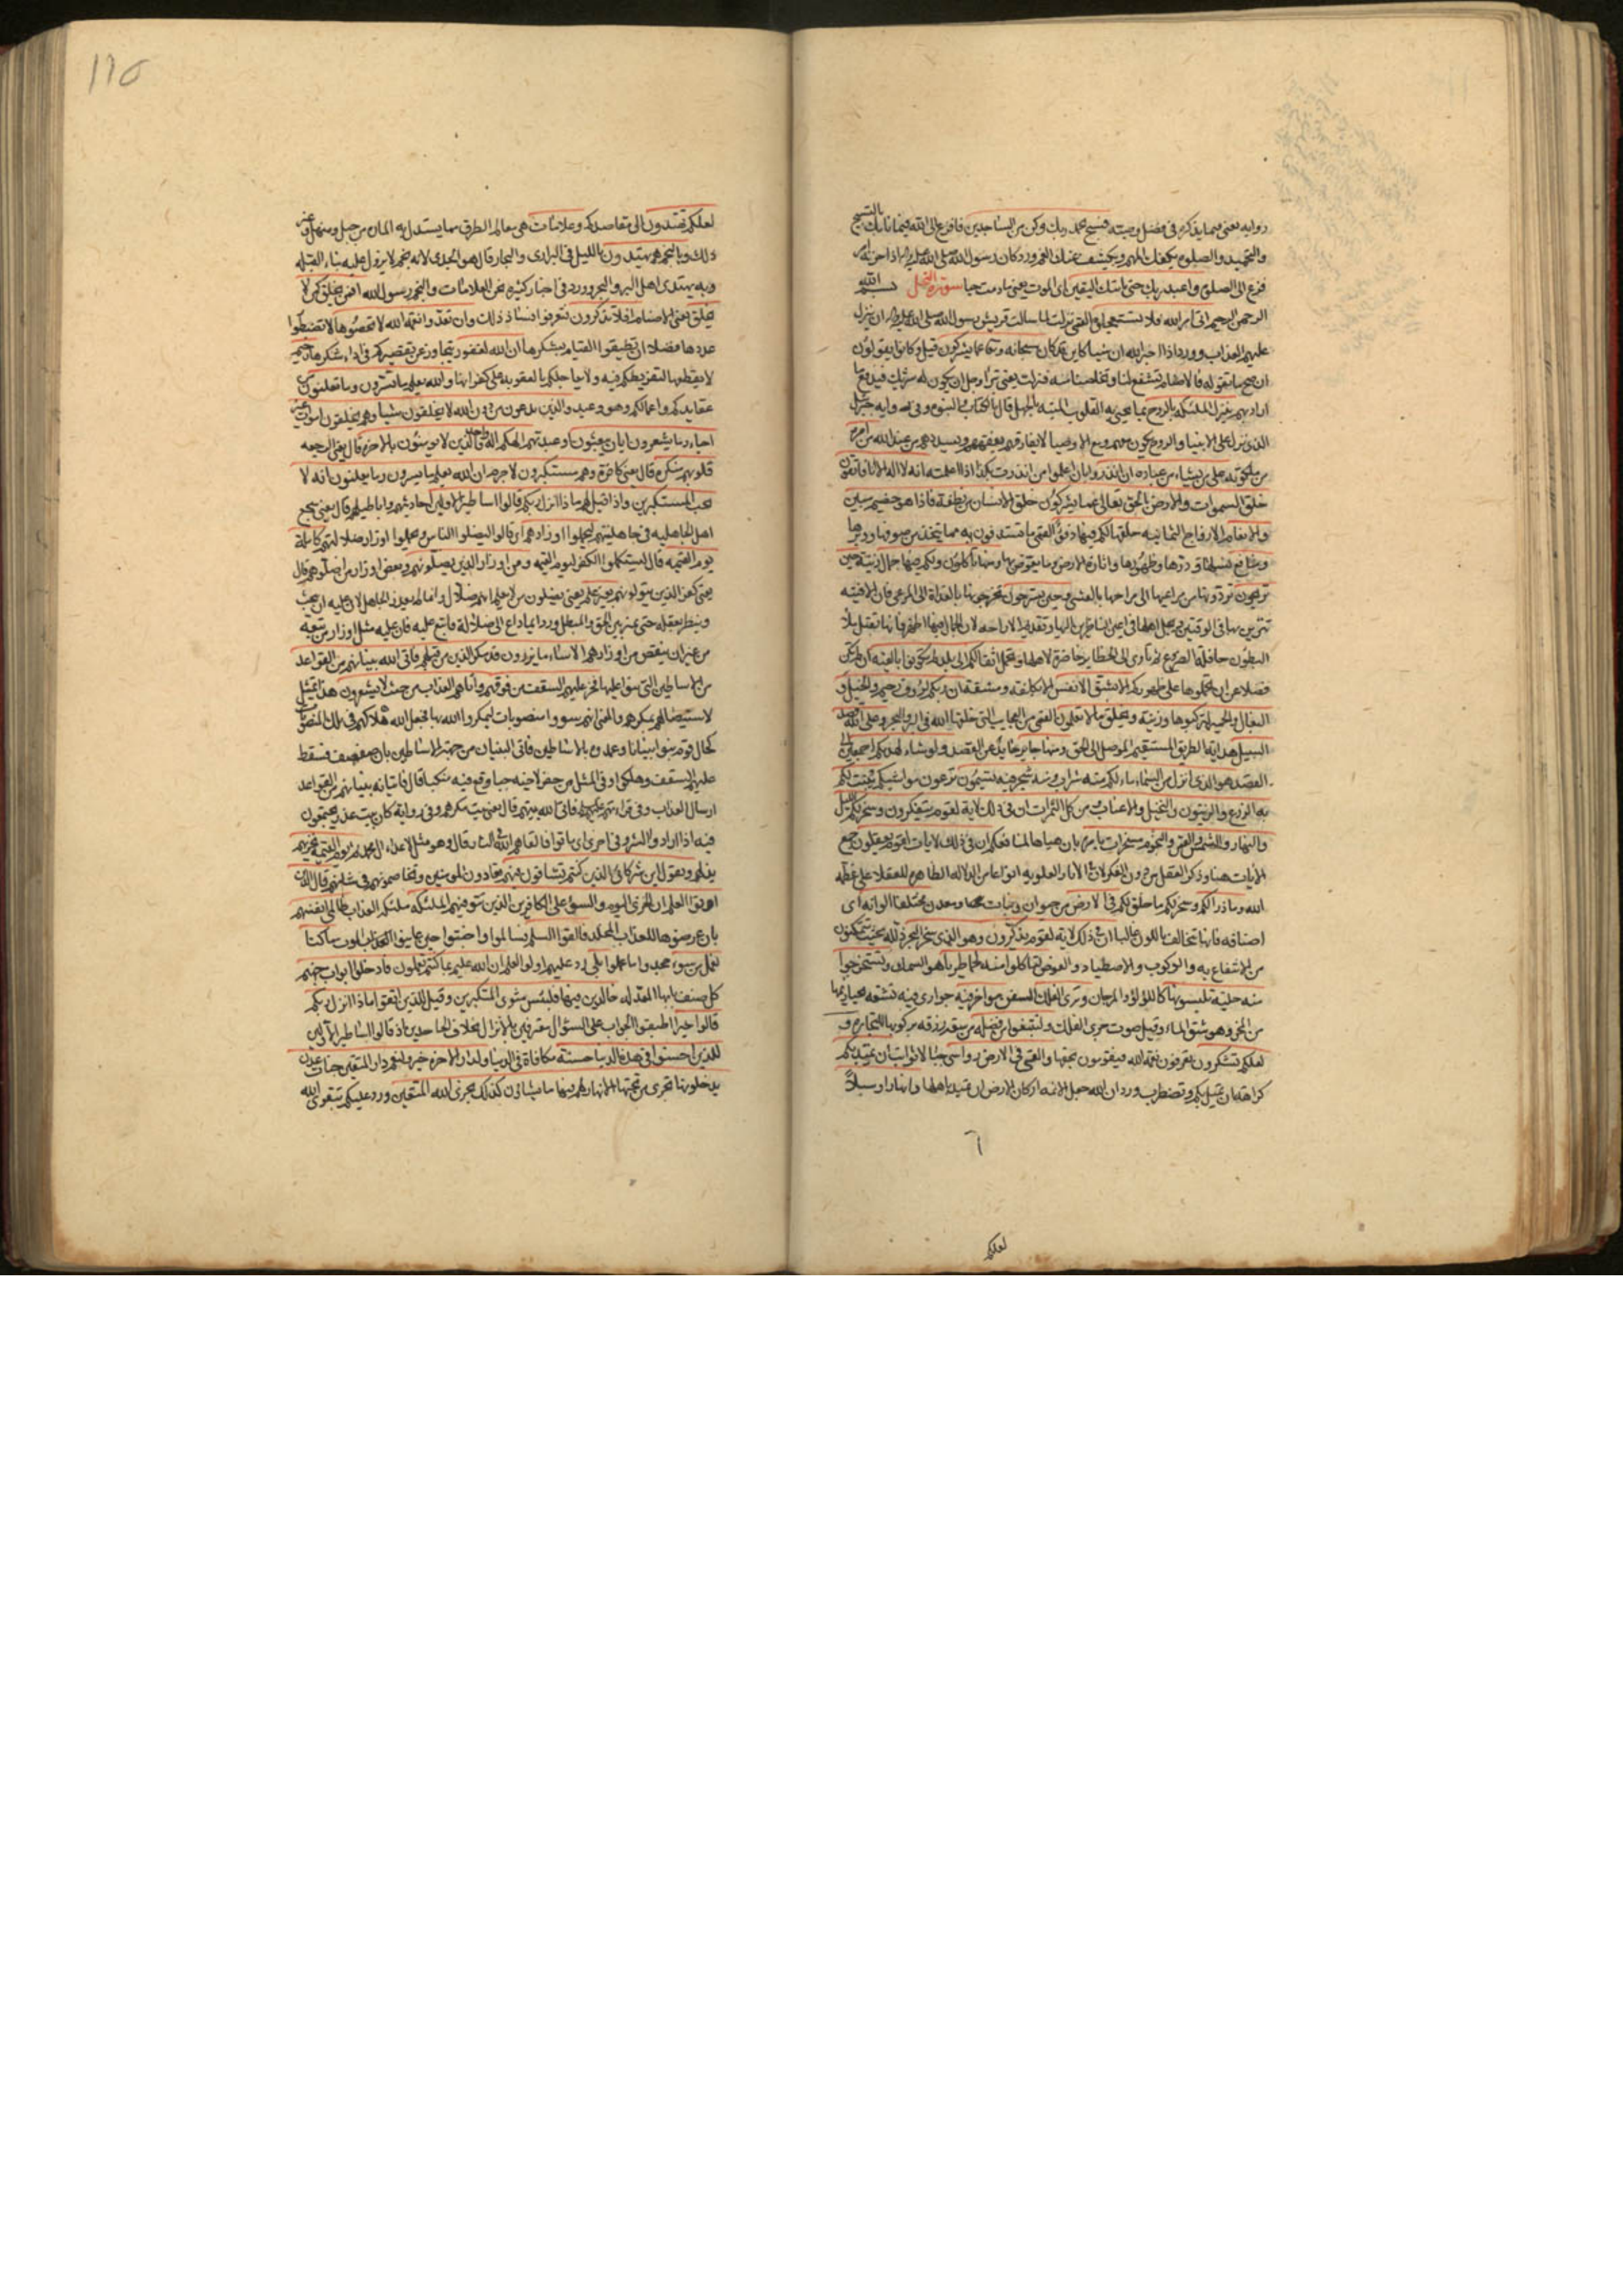 رواية يعني فيما يذكره في فضل وصيه فسبح بحمد ربك وكن من الساجدين فافزع الى الله فيما نابك بالتسبيح
والتحميد والصلوة يكفك المهم ويكشف عنك الغم وورد كان رسول الله صلى الله عليه واله اذا حزنه امر
فزع الى الصلوة واعبد ربك حتى ياتيك اليقين اى الموت يعني ما دمت حيا سورة النحل بسم الله
الرحمن الرحيم اتى امر الله فلا تستعجلوه القمي نزلت لما سالت قريش رسول الله صلى الله عليه واله ان ينزل
عليهم العذاب وورد اذا اخبر الله ان شيئا كاين فكانه قد كان سبحانه وتعالى عما يشركون قيل وكانوا يقولون
ان صح ما تقوله فالاصنام تشفع لنا وتخلصنا منه فنزلت يعني تبرا وجل ان يكون له شريك فيدفع ما
اراد بهم ينزل الملئكة بالروح بما يحيي به القلوب الميتة بالجهل قال بالكتاب والنبوة وفي رواية جبرئيل
الذي نزل على الانبيا والروح يكون معهم ومع الاوصيا لا يفارقهم يفقههم ويسددهم من عند الله من امره
من ملكوته على من يشاء من عباده ان انذروا بان اعلموا من انذرت بكذا اذا اعلمته انه لا اله الا انا فاتقون
خلق السموات والارض بالحق تعالى عما يشركون خلق الانسان من نطفة فاذا هو خصيم مبين
والانعام الازواج الثمانية خلقها لكم فيها دفؤ القمي ما تستدفون به مما يتخذ من صوفها ووبرها
ومنافع نسلها ودرها وظهورها واثارة الارض وما يعوض بها ومنها تاكلون ولكم فيها جمال زينة حين
تريحون تردونها من مراعيها الى مراحها بالعشي وحين تسرحون تخرجونها بالغداة الى المرعى فان الافنية
تتزين بها في الوقتين ويجل اهلها في اعين الناظرين اليها وتقديم الاراحة لان الجمال فيها اظهر فانها تقبل ملأ
البطون حافلة الضروع ثم تاوى الى الحظاير حاضرة لاهلها وتحمل اثقالكم الى بلد لم تكونوا بالغيه ان لم تكن
فضلا عن ان تحملوها على ظهوركم الا بشق الانفس الا بكلفة ومشقة ان ربكم لرؤف رحيم والخيل و
البغال والحمير لتركبوها وزينة ويخلق ما لا تعلمون القمي من العجايب التي خلقها الله في البر والبحر وعلى الله قصد
السبيل هداية الطريق المستقيم الموصل الى الحق ومنها جاير حايد عن القصد ولو شاء لهديكم اجمعين الى
القصد هو الذي انزل من السماء ماء لكم منه شراب ومنه شجر فيه تسيمون ترعون مواشيكم ينبت لكم
به الزرع والزيتون والنخيل والاعناب ومن كل الثمرات ان في ذلك لاية لقوم يتفكرون وسخر لكم الليل
والنهار والشمس والقمر والنجوم مسخرات بامره بان هياها لمنافعكم ان في ذلك لايات لقوم يعقلون جمع
الايات هنا وذكر العقل من دون الفكر لان في الاثار العلوية انواعا من الدلالة الظاهرة للعقلا على عظمة
الله وما ذرا لكم وسخر لكم ما خلق لكم في الارض من حيوان ونبات ومعدن مختلفا الوانه اى
اصنافه فانها تتخالف باللون غالبا ان في ذلك لاية لقوم يذكرون وهو الذي سخر البحر ذلله بحيث تتمكنون
من الانتفاع به والركوب والاصطياد والغوص لتاكلوا منه لحما طريا هو السمك وتستخرجوا
منه حلية تلبسونها كاللؤلؤ والمرجان وترى الفلك السفن مواخر فيه جوارى فيه تشقه بحيازيمها
من المخر وهو شق الماء وقيل صوت جرى الفلك ولتبتغوا من فضله من سعة رزقه بركوبها للتجارة و
لعلكم تشكرون تعرفون نعمة الله فيقومون بحقها والقى في الارض رواسي جبالا ثوابت ان تميد بكم
كراهة ان تميل بكم وتضطرب ورد ان الله جعل الائمة اركان الارض ان تميد باهلها وانهارا وسبلا
لعلكم
لعلكم تهتدون الى مقاصدكم وعلامات هي معالم الطرق مما يستدل به المارة من جبل ومنهل وغير
ذلك وبالنجم هم يهتدون بالليل في البرارى والبحار قال هو الجدى لانه نجم لا يزول عليه بناء القبلة
وبه يهتدى اهل البر والبحر وورد في اخبار كثيرة نحن العلامات والنجم رسول الله افمن يخلق كمن لا
يخلق يعني الاصنام افلا تذكرون فتعرفوا فساد ذلك وان تعدوا نعمة الله لا تحصوها لا تضبطوا
عددها فضلا ان تطيقوا القيام بشكرها ان الله لغفور يتجاوز عن تقصيركم في اداء شكرها رحيم
لا يقطعها لتفريطكم فيه ولا يعاجلكم بالعقوبة على كفرانها والله يعلم ما تسرون وما تعلنون
عقايدكم واعمالكم وهو وعيد والذين يدعون من دون الله لا يخلقون شيئا وهم يخلقون اموات غير
احياء وما يشعرون ايان يبعثون او عبدتهم الهكم اله واحد فالذين لا يؤمنون بالاخرة قال يعني الرجعة
قلوبهم منكرة قال يعني كافرة وهم مستكبرون لا جرم ان الله يعلم ما يسرون وما يعلنون انه لا
يحب المستكبرين واذا قيل لهم ماذا انزل ربكم قالوا اساطير الاولين احاديثهم واباطيلهم قال يعني سجع
اهل الجاهلية في جاهليتهم ليحملوا اوزارهم اى قالوا ليضلوا الناس ويحملوا اوزار ضلالتهم كاملة
يوم القيمة قال ليستكملوا الكفر ليوم القيمة ومن اوزار الذين يضلونهم وبعض اوزار من اضلوهم قال
يعني كفر الذين يتولونهم بغير علم يعني يضلون من لا يعلم انهم ضلال وانما لم يعذر الجاهل لان عليه ان يبحث
وينظر بعقله حتى يميز بين المحق والمبطل وورد ايما داع الى ضلالة فاتبع عليه فان عليه مثل اوزار من تبعه
من غير ان ينقص من اوزارهم الا ساء ما يزرون قد مكر الذين من قبلهم فاتى الله بنيانهم من القواعد
من الاساطين التي بنوا عليها فخر عليهم السقف من فوقهم واتاهم العذاب من حيث لا يشعرون هذا تمثيل
لاستيصالهم بمكرهم والمعنى انهم سووا منصوبات ليمكروا الله بها فجعل الله هلاكهم في تلك المنصوبات
كحال قوم بنوا بنيانا وعمدوه بالاساطين فاتى البنيان من جهة الاساطين بان ضعضعت فسقط
عليهم السقف وهلكوا وفي المثل من حفر لاخيه جبا وقع فيه منكبا قال فاتيانه بنيانهم من القواعد
ارسال العذاب وفي قراءتهم عليهم السلم فاتى الله بيتهم قال يعني بيت مكرهم وفي رواية كان بيت غدر يجتمعون
فيه اذا ارادوا الشر وفي اخرى اى ماتوا فالقاهم الله في النار قال وهو مثل لاعداء ال محمد ثم يوم القيمة يخزيهم
يذلهم ويقول اين شركائي الذين كنتم تشاقون فيهم تعادون المؤمنين وتخاصمونهم في شانهم قال الذين
اوتوا العلم ان الخزى اليوم والسوء على الكافرين الذين تتوفيهم الملئكة ملئكة العذاب ظالمي انفسهم
بان عرضوها للعذاب المخلد فالقوا السلم فسالموا واخبتوا حين عاينوا العذاب او الموت ما كنا
نعمل من سوء جحدوا ما عملوا بلى رد عليهم اولوا العلم ان الله عليم بما كنتم تعملون فادخلوا ابواب جهنم
كل صنف بابها المعد له خالدين فيها فلبئس مثوى المتكبرين وقيل للذين اتقوا ماذا انزل ربكم
قالوا خيرا اطبقوا الجواب على السؤال معترفين بالانزال بخلاف الجاحدين اذ قالوا اساطير الاولين
للذين احسنوا في هذه الدنيا حسنة مكافاة في الدنيا ولدار الاخرة خير ولنعم دار المتقين جنات عدن
يدخلونها تجرى من تحتها الانهار لهم فيها ما يشاؤن كذلك يجزى الله المتقين ورد عليكم بتقوى الله